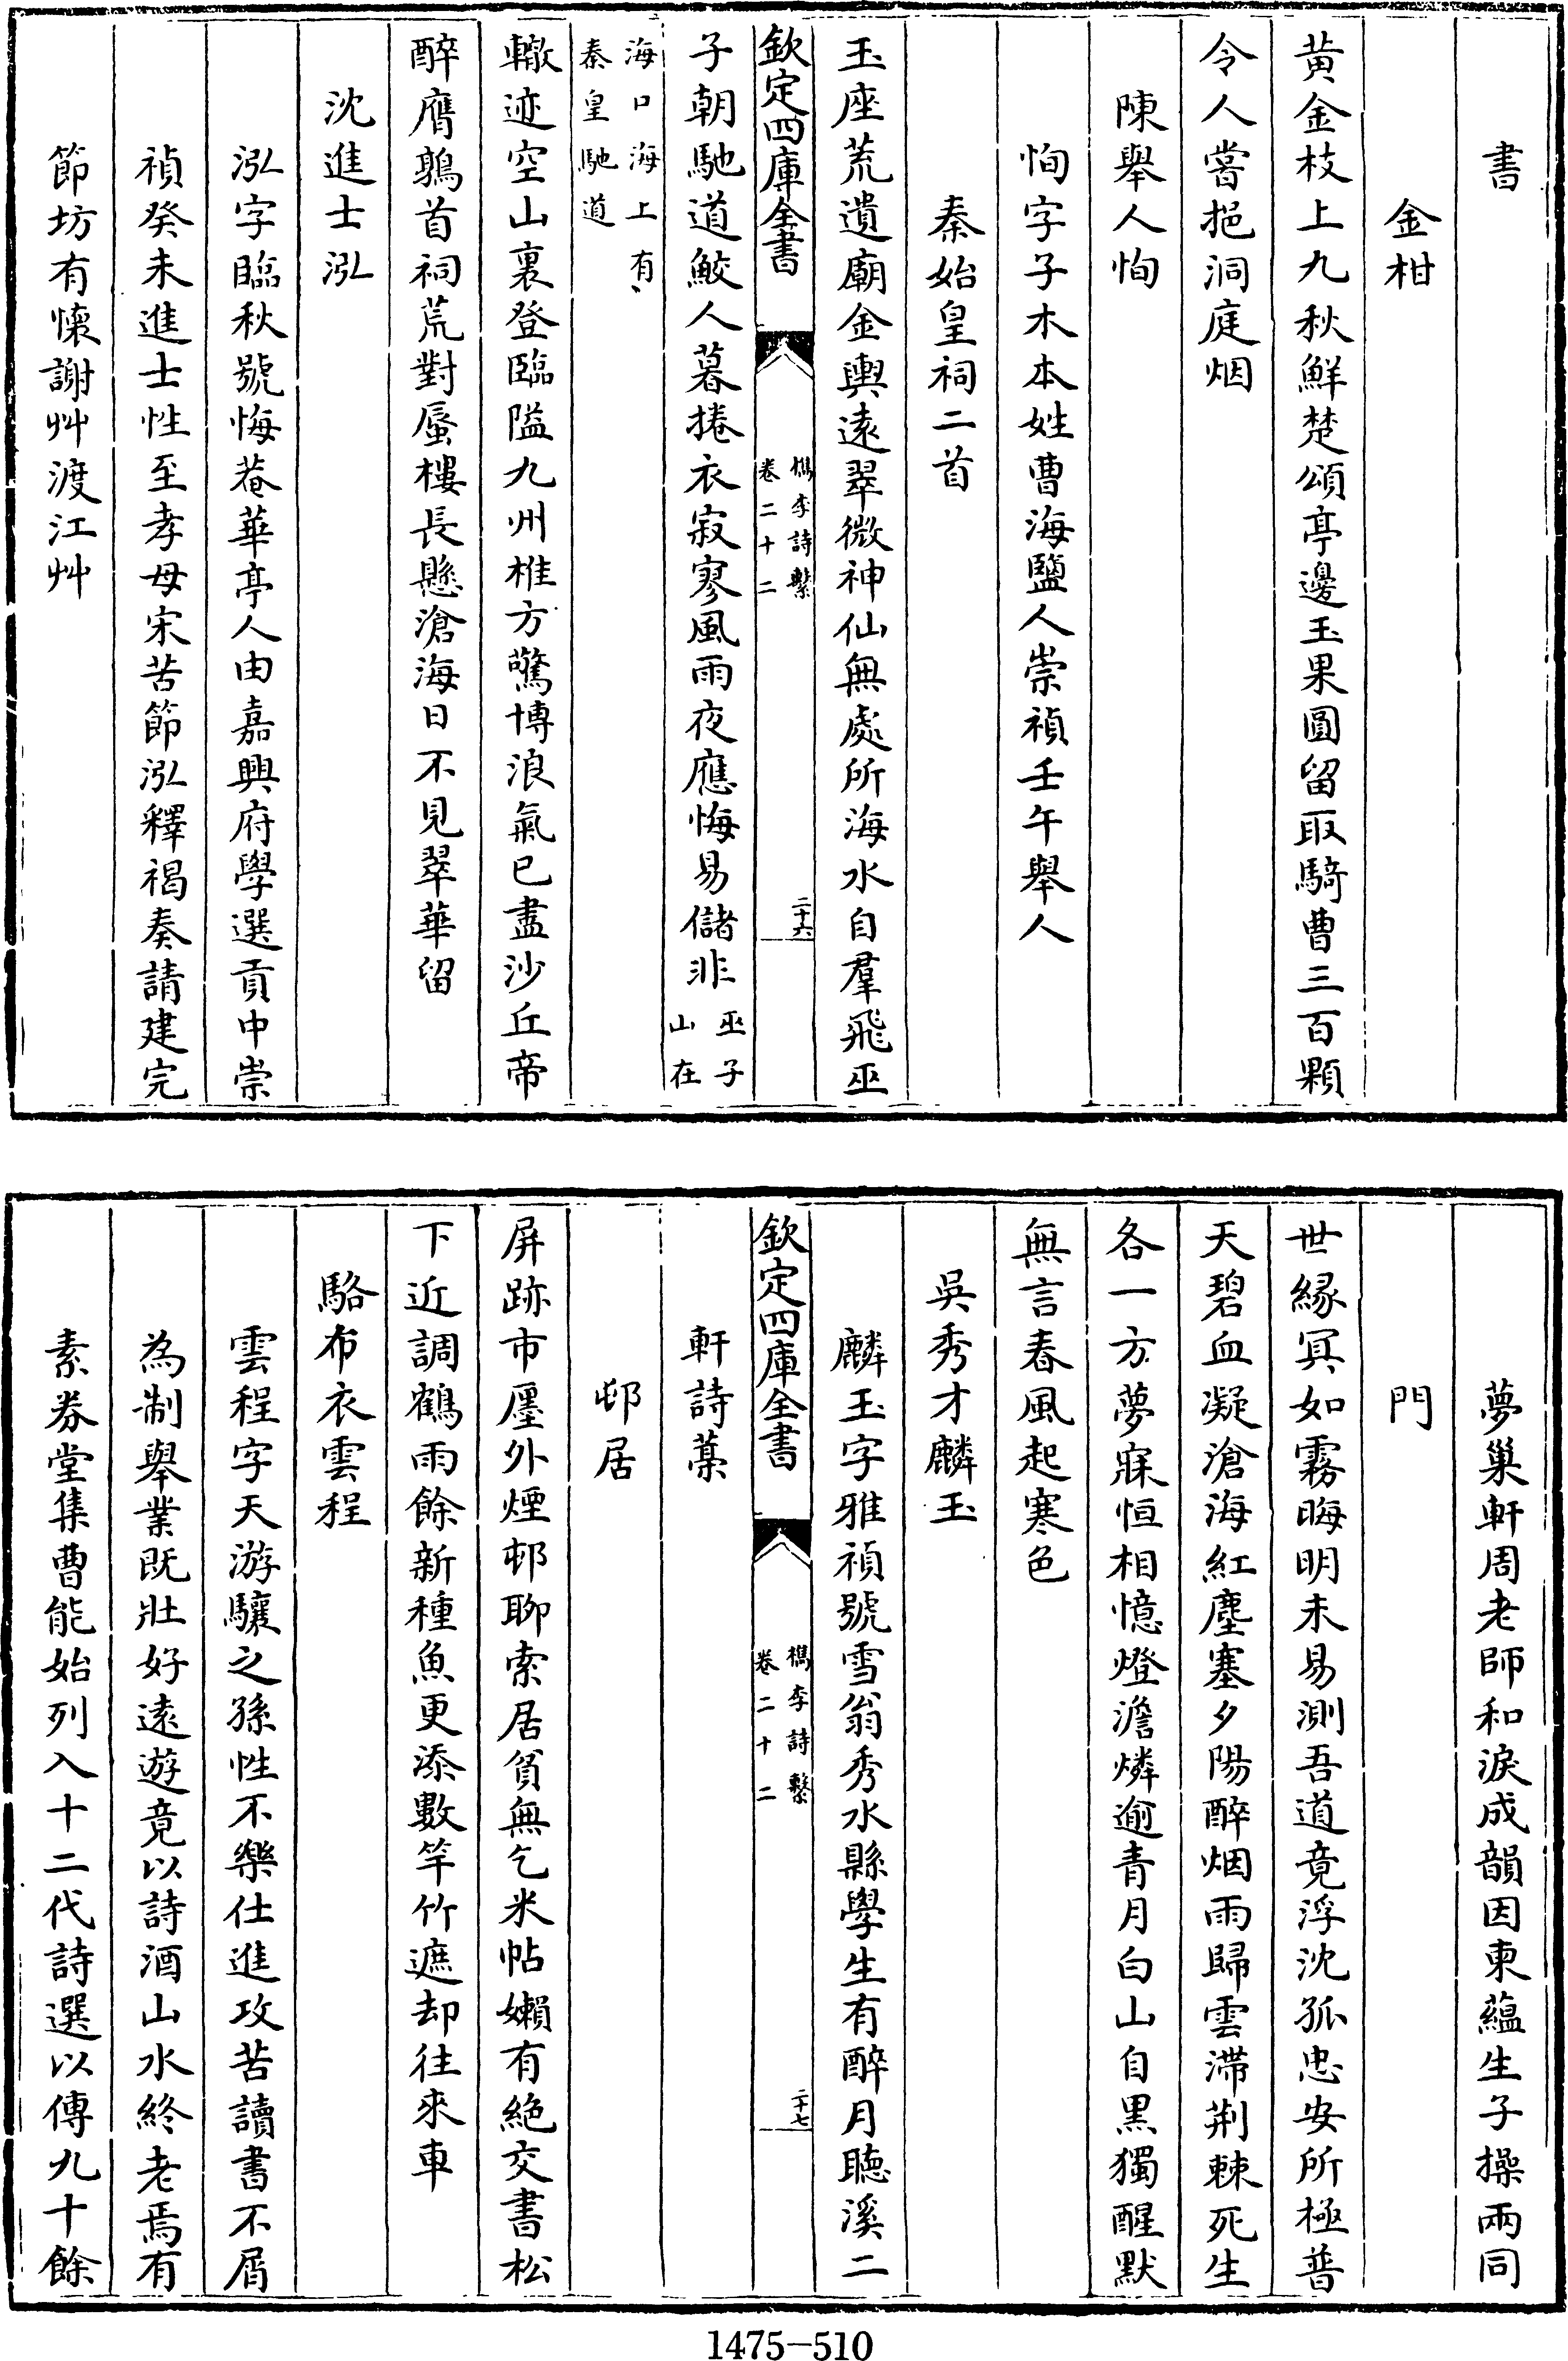 書
金柑
黃金枝上九秋鮮楚頌亭邊玉果圓留取騎曹三百顆
令人嘗挹洞庭烟
陳舉人恂
恂字子木本姓曹海鹽人崇禎壬午舉人
秦始皇祠二首
玉座荒遺廟金輿遠翠微神仙無處所海水自羣飛巫
欽定四庫全書
檇李詩繫
卷二十二
二十六
子朝馳道鮫人暮捲衣寂寥風雨夜應悔易儲非
巫子
山在
海口海上有
秦皇馳道
轍迹空山裏登臨隘九州椎方驚博浪氣已盡沙丘帝
醉鷹鶉首祠荒對蜃樓長懸滄海日不見翠華留
沈進士泓
泓字臨秋號悔菴華亭人由嘉興府學選貢中崇
禎癸未進士性至孝母宋苦節泓釋褐奏請建完
節坊有懷謝艸渡江艸
夢巢軒周老師和淚成韻因柬蘊生子操兩同
門
世緣冥如霧晦明未易測吾道竟浮沈孤忠安所極普
天碧血凝滄海紅塵塞夕陽醉烟雨歸雲滯荆棘死生
各一方夢寐恒相憶燈澹燐逾青月白山自黑獨醒默
無言春風起寒色
吳秀才麟玉
麟玉字雅禎號雪翁秀水縣學生有醉月聽溪二
欽定四庫全書
檇李詩繫
卷二十二
二十七
軒詩藁
邨居
屏跡市廛外煙邨聊索居貧無乞米帖嬾有絶交書松
下近調鶴雨餘新種魚更添數竿竹遮却往來車
駱布衣雲程
雲程字天游驤之孫性不樂仕進攻苦讀書不屑
為制舉業既壯好遠遊竟以詩酒山水終老焉有
素劵堂集曹能始列入十二代詩選以傳九十餘
1475-510